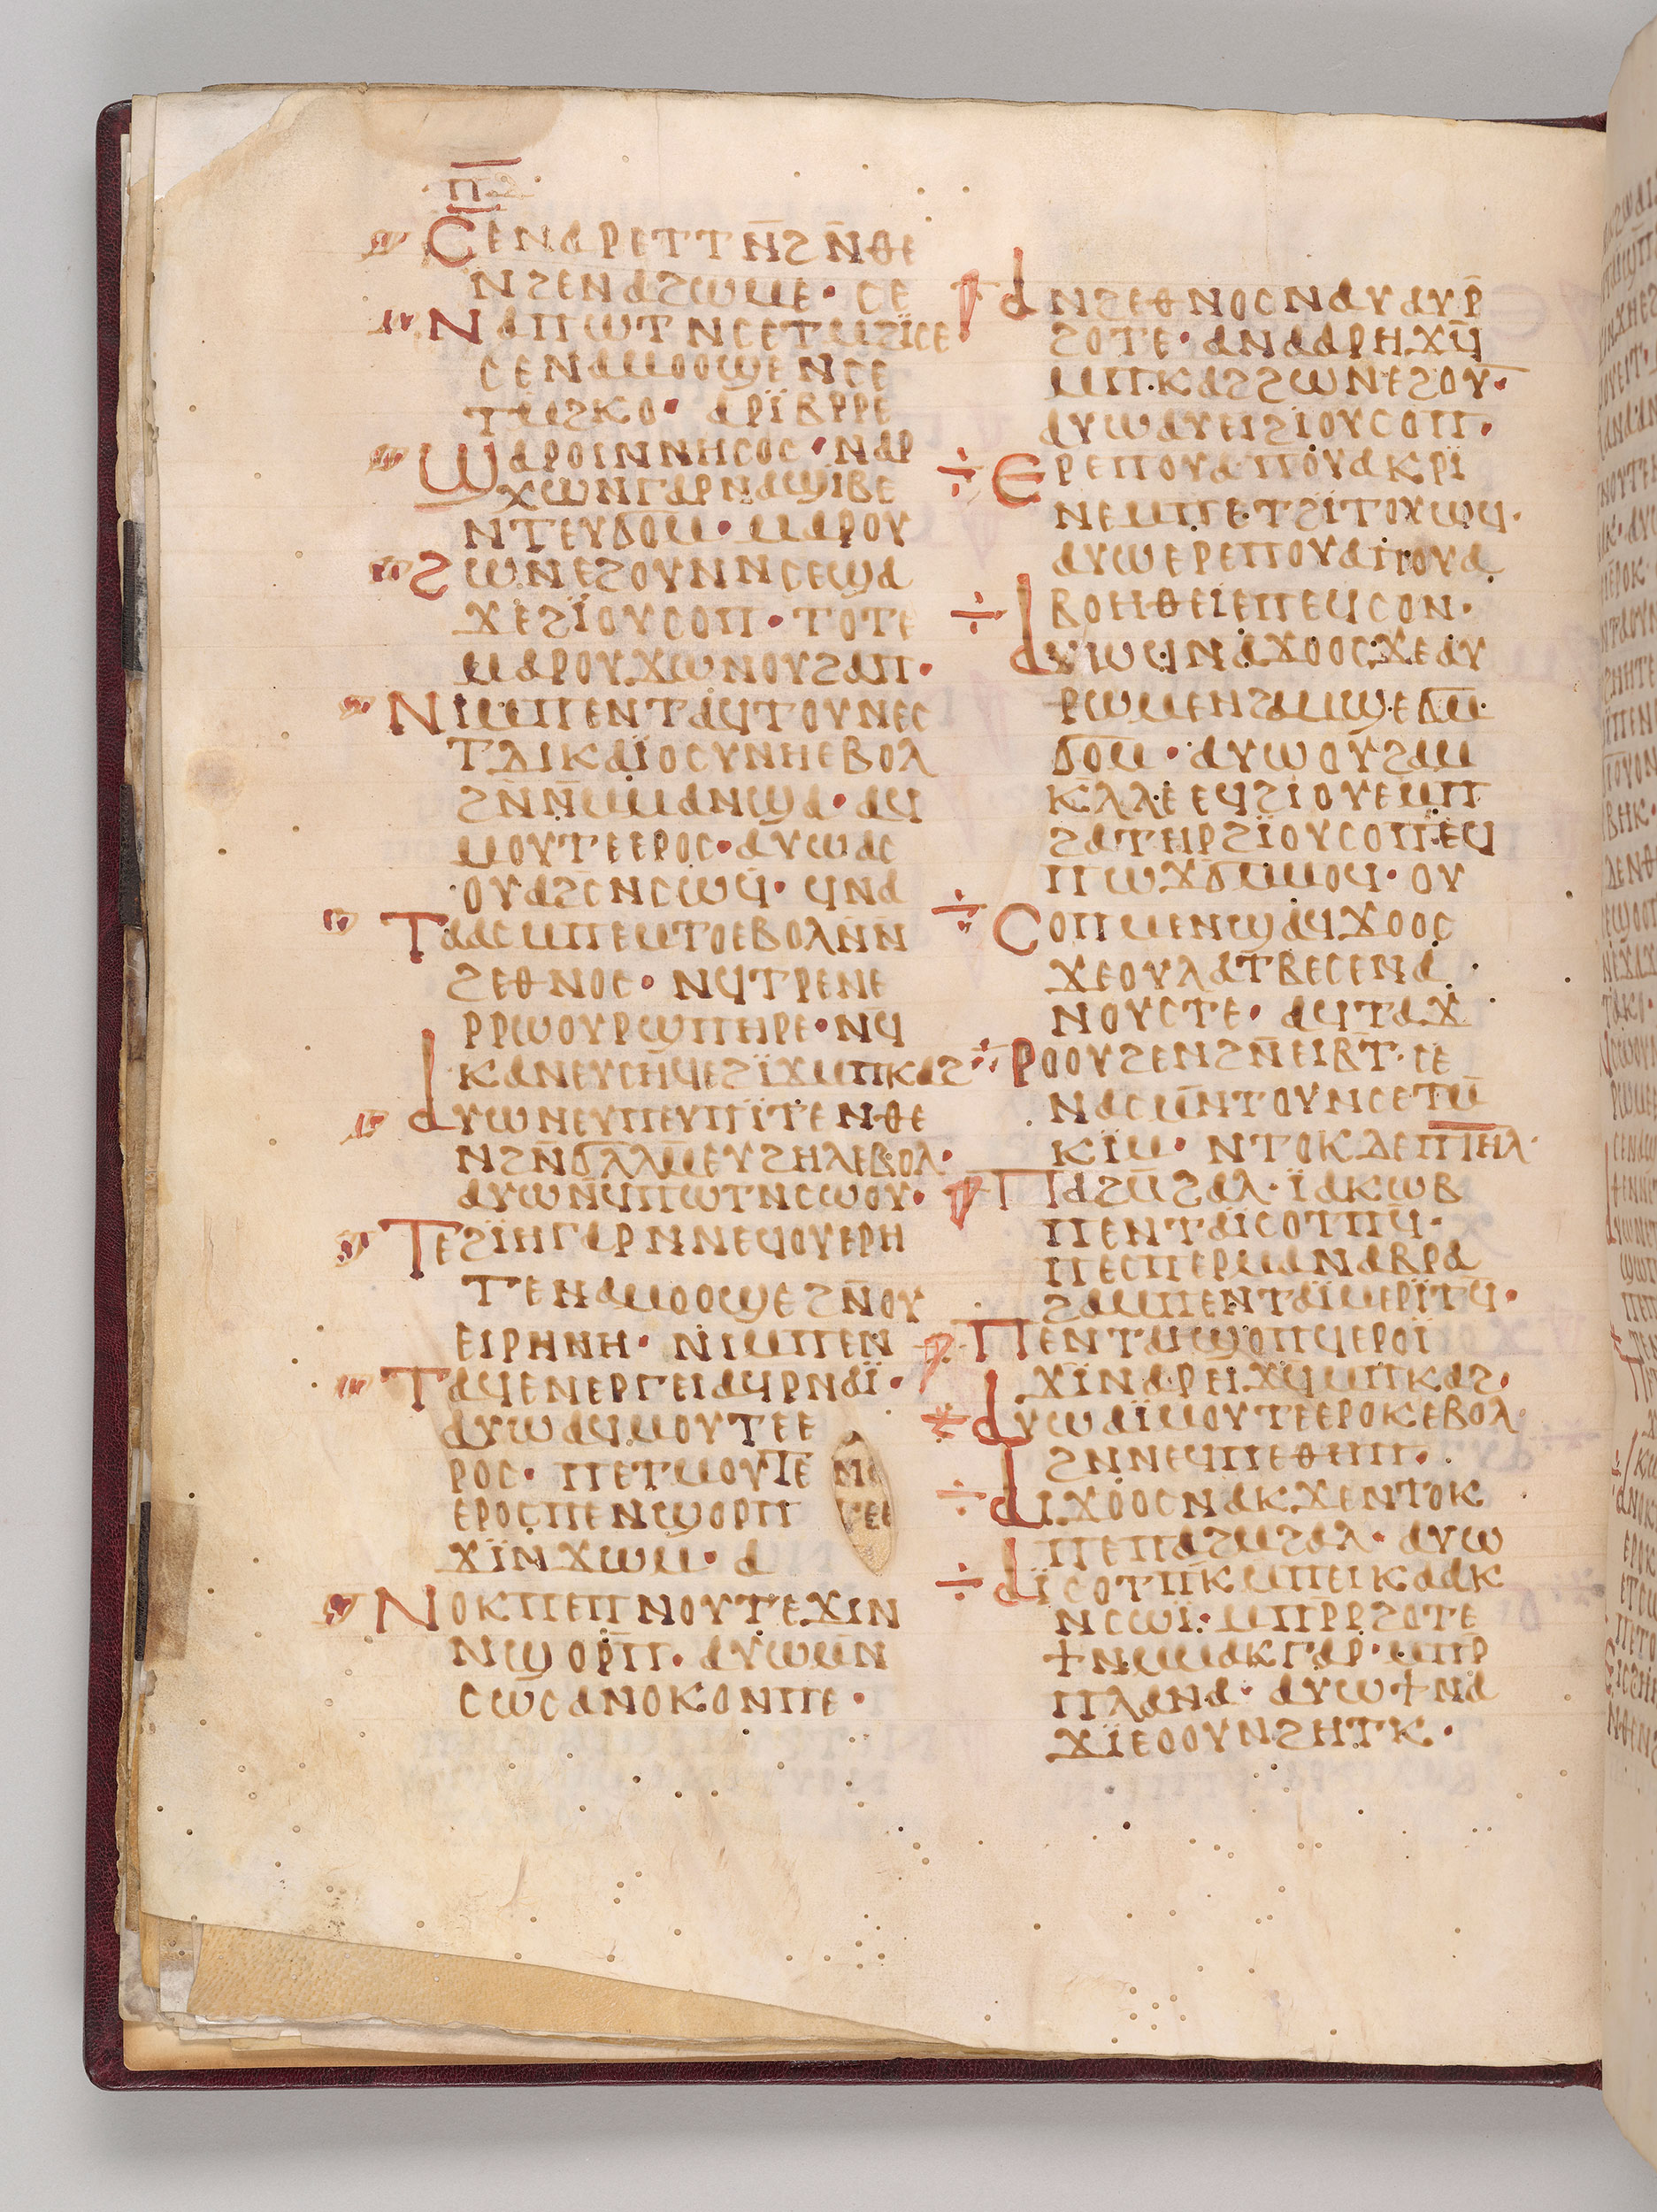 ⲡ̅
Ⲥⲉⲛⲁⲣⲉⲧⲧⲛ̄ϩⲛ̄ⲑⲉ
ⲛϩⲉⲛⲁϩⲱⲙⲉ· ⲥⲉ
Ⲛⲁⲡⲱⲧⲛⲥⲉⲧⲙϩⲓ̈ⲥⲉ
ⲥⲉⲛⲁⲙⲟⲟϣⲉⲛⲥⲉ
ⲧⲙϩⲕⲟ· ⲁⲣⲓ̈ⲃⲣⲣⲉ
Ϣⲁⲣⲟⲓⲛⲛⲏⲥⲟⲥ·ⲛⲁⲣ
ⲭⲱⲛⲅⲁⲣⲛⲁϣⲓⲃⲉ
ⲛⲧⲉⲩϭⲟⲙ· ⲙⲁⲣⲟⲩ
Ϩⲱⲛⲉϩⲟⲩⲛⲛⲥⲉϣⲁ
ϫⲉϩⲓ̈ⲟⲩⲥⲟⲡ·ⲧⲟⲧⲉ
ⲙⲁⲣⲟⲩϫⲱⲛⲟⲩϩⲁⲡ·
Ⲛⲓⲙⲡⲉⲛⲧⲁϥⲧⲟⲩⲛⲉⲥ
ⲧⲇⲓⲕⲁⲓ̈ⲟⲥⲩⲛⲏⲉⲃⲟⲗ
ϩⲛ̄ⲛ̄ⲙⲙⲁⲛϣⲁ·ⲁϥ
ⲙⲟⲩⲧⲉⲉⲣⲟⲥ·ⲁⲩⲱⲁⲥ
ⲟⲩⲁϩⲥ̄ⲛⲥⲱϥ· ϥⲛⲁ
Ⲧⲁⲁⲥⲙⲡⲉⲙⲧⲟⲉⲃⲟⲗⲛ̄ⲛ̄
ϩⲉⲑⲛⲟⲥ· ⲛϥⲧⲣⲉⲛⲉ
ⲣⲣⲱⲟⲩⲣϣⲡⲏⲣⲉ·ⲛϥ
ⲕⲁⲛⲉⲩⲥⲏϥⲉϩⲓ̈ϫⲙⲡⲕⲁϩ
Ⲁⲩⲱⲛⲉⲩⲡⲉⲩⲡⲓ̈ⲧⲉⲛⲑⲉ
ⲛϩⲛ̄ϭⲗⲗⲙ̄ⲉⲩϩⲏⲗⲉⲃⲟⲗ·
ⲁⲩⲱⲛ̄ϥⲡⲱⲧⲛⲥⲱⲟⲩ·
Ⲧⲉϩⲓ̈ⲏⲅⲁⲣⲛⲛⲉϥⲟⲩⲉⲣⲏ
ⲧⲉⲛⲁⲙⲟⲟϣⲉϩⲛ̄ⲟⲩ
ⲉⲓⲣⲏⲛⲏ· ⲛⲓⲙⲡⲉⲛ
Ⲧⲁϥⲉⲛⲉⲣⲅⲉⲓⲁϥⲣⲛⲁⲓ̈·
ⲁⲩⲱⲁϥⲙⲟⲩⲧⲉⲉ
ⲣⲟⲥ· ⲡⲉⲧⲙⲟⲩⲧⲉ
ⲉⲣⲟⲥⲡⲉⲛϣⲟⲣⲡ
ϫⲓ̈ⲛϫⲱⲙ· ⲁ
Ⲛⲟⲕⲡⲉⲡⲛⲟⲩⲧⲉϫⲓⲛ
ⲛϣⲟⲣⲡ̄· ⲁⲩⲱⲙⲛ̄
ⲥⲱⲥⲁⲛⲟⲕⲟⲛⲡⲉ·
Ⲁⲛϩⲉⲑⲛⲟⲥⲛⲁⲩⲁⲩⲣ̄
ϩⲟⲧⲉ·ⲁⲛⲁⲁⲣⲏϫϥ̄
ⲙⲡⲕⲁϩϩⲱⲛⲉϩⲟⲩ̅·
ⲁⲩⲱⲁⲩⲉⲓϩⲓⲟⲩⲥⲟⲡ·
Ⲉⲣⲉⲡⲟⲩⲁⲡⲟⲩⲁⲕⲣⲓ̈
ⲛⲉⲙⲡⲉⲧϩⲓⲧⲟⲩⲱϥ·
ⲁⲩⲱⲉⲣⲉⲡⲟⲩⲁⲡⲟⲩⲁ
ⲃⲟⲏⲑⲉⲓⲉⲡⲉϥⲥⲟⲛ·
Ⲁⲩⲱϥⲛⲁϫⲟⲟⲥϫⲉⲁⲩ
ⲣⲱⲙⲉⲛϩⲁⲙϣⲉϭⲙ̄
ϭⲟⲙ·ⲁⲩⲱⲟⲩϩⲁⲙ
ⲕⲗⲗⲉⲉϥϩⲓⲟⲩⲉⲙⲡ
ϩⲁⲧⲉⲓⲣϩⲓ̈ⲟⲩⲥⲟⲡ·ⲉϥ
ⲡⲱϫϭⲙⲙⲟϥ· ⲟⲩ
Ⲥⲟⲡⲙⲉⲛϣⲁϥϫⲟⲟⲥ
ϫⲉⲟⲩⲗⲁⲧⲃⲉⲥⲉⲛⲁ
ⲛⲟⲩⲥⲧⲉ· ⲁϥⲧⲁϫ
Ⲣⲟⲟⲩϩⲉⲛϩⲛⲉⲓⲃⲧ·ⲥⲉ
ⲛⲁⲥⲙⲛ̄ⲧⲟⲩⲛⲥⲉⲧⲙ̄
ⲕⲓ̈ⲙ· ⲛⲧⲟⲕⲇⲉⲡⲓ̅ⲏ̅ⲗ̅
Ⲡⲁϩⲙ̄ϩⲁⲗ·ⲓ̈ⲁⲕⲱⲃ
ⲡⲉⲛⲧⲁⲓ̈ⲥⲟⲧⲡϥ̄·
ⲡⲉⲥⲡⲉⲣⲙⲁⲛⲁⲃⲣⲁ
ϩⲁⲙⲡⲉⲛⲧⲁⲓ̈ⲙⲉⲣⲓ̈ⲧϥ·
Ⲡⲉⲛⲧⲁⲓϣⲟⲡϥⲉⲣⲟⲓ̈
ϫⲓⲛⲁⲣⲏϫϥⲙⲡⲕⲁϩ·
Ⲁⲩⲱⲁⲓ̈ⲙⲟⲩⲧⲉⲉⲣⲟⲕⲉⲃⲟⲗ
ϩⲛⲛⲉϥⲡⲉⲑⲏⲡ·
Ⲁⲓϫⲟⲟⲥⲛⲁⲕϫⲉⲛⲧⲟⲕ
ⲡⲉⲡⲁϩⲙϩⲁⲗ· ⲁⲩⲱ
Ⲁⲓ̈ⲥⲟⲧⲡⲕ̄ⲙⲡⲉⲓⲕⲁⲁⲕ
ⲛⲥⲱⲓ̈·ⲙⲡⲣ̄ⲣϩⲟⲧⲉ
ϯⲛⲙⲙⲁⲕⲅⲁⲣ·ⲙⲡⲣ
ⲡⲗⲁⲛⲁ· ⲁⲩⲱϯⲛⲁ
ϫⲓ̈ⲉⲟⲟⲩⲛϩⲏⲧⲕ·